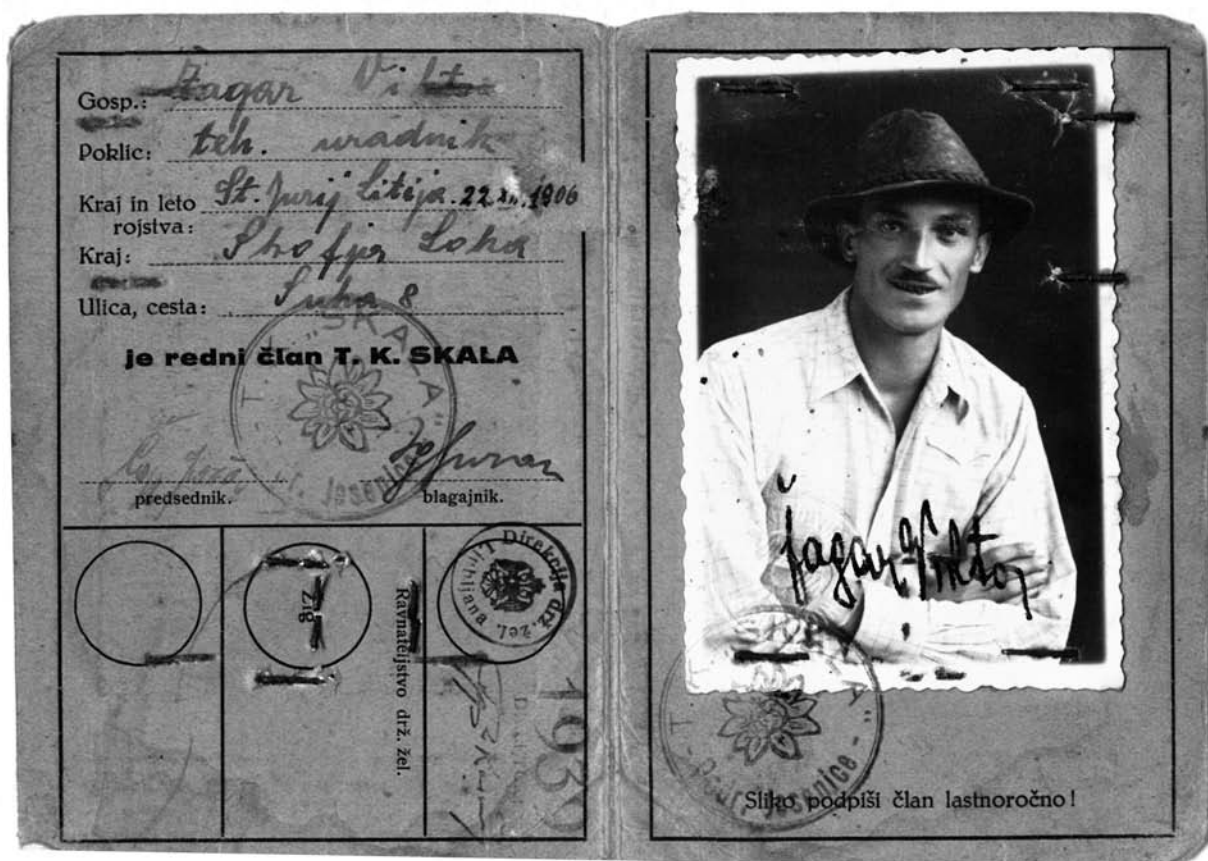 Gosp.: Žagar Viktor
Poklic: teh. uradnik
Kraj in leto rojstva: St. Jurij Litija. 22 XII. 1906
Kraj: Škofja Loka
Ulica, cesta: Suha 8
je redni član T. K. SKALA
T. K. "SKALA" Jesenice
predsednik.
blagajnik.
Žig
Ravnateljstvo drž. žel.
Direkcija drž. žel. Ljubljana
193
Žagar Viktor
T. "A" - Podr. Jesenice -
Sliko podpiši član lastnoročno!